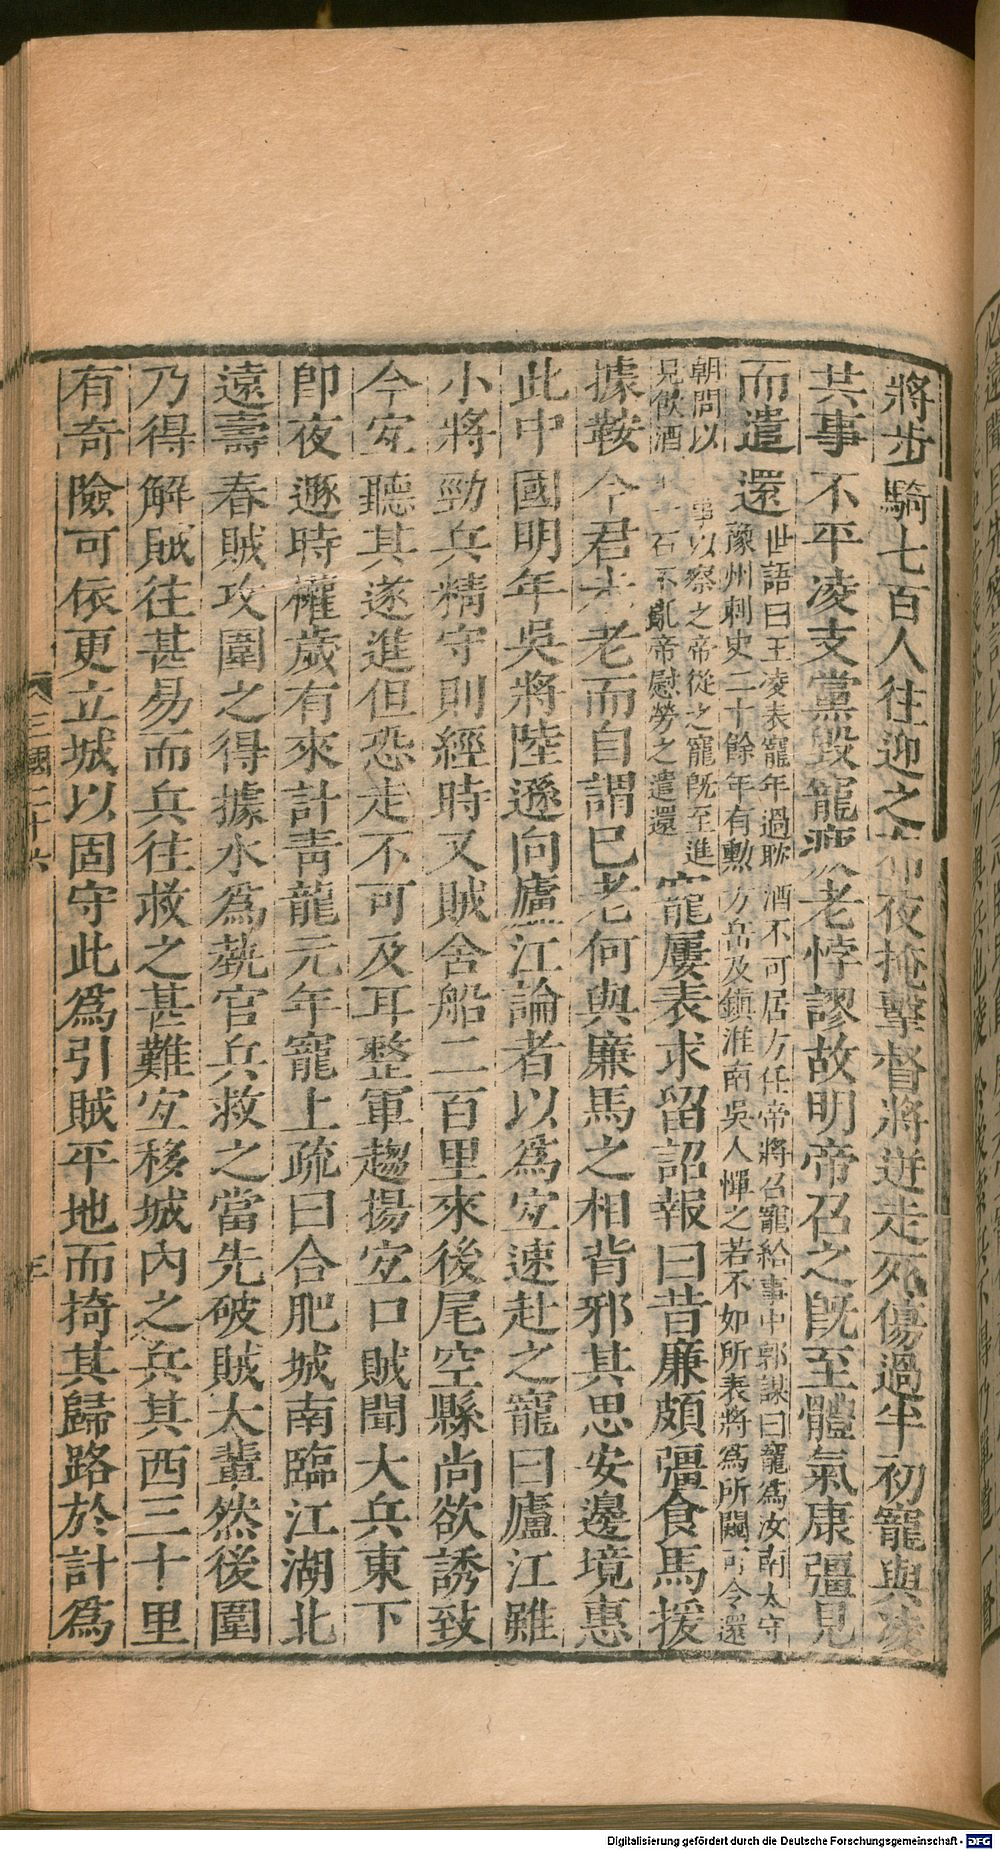 將步騎七百人往迎之布夜掩擊督將迸走死傷過半初寵與凌
共事不平凌支黨毀寵疲老悖謬故明帝召之旣至體氣康彊見
而遣還世語曰王凌表寵年過耽酒不可居方任帝將召寵給事中郭謀曰寵為汝南太守
豫州刺史二十餘年有勲方岳及鎮淮南吳人憚之若不如所表將為所闚可令還
朝問以事以察之帝從之寵旣至進
見飲酒一石不亂帝慰勞之遣還寵屢表求留詔報曰昔廉頗彊食馬援
據鞍今君未老而自謂已老何與廉馬之相背邪其思安邊境惠
此中國明年吳將陸遜向廬江論者以為宐速赴之寵曰廬江雖
小將勁兵精守則經時又賊舍船二百里來後尾空縣尚欲誘致
今宐聽其遂進但恐走不可及耳整軍趨揚宐口賊聞大兵東下
卽夜遯時權歲有來計靑龍元年寵上疏曰合肥城南臨江湖北
遠壽春賊攻圍之得據水為埶官兵救之當先破賊大輩然後圍
乃得解賊往甚易而兵往救之甚難宐移城內之兵其西三十里
有奇險可依更立城以固守此為引賊平地而掎其歸路於計為
三國二十六
Digitalisierung gefördert durch die Deutsche Forschungsgemeinschaft - DFG